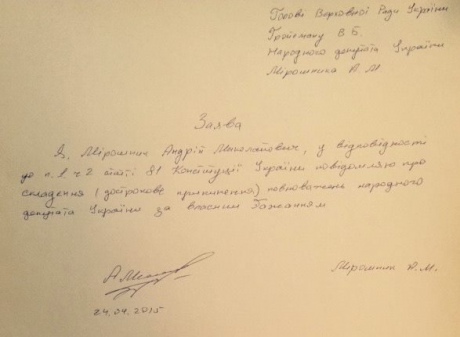 Голові Верховної Ради України
Гройсману В Б.
Народного депутата України
Мірошника А. М.
Заява
Я, Мірошник Андрій Миколайович, у відповідності
до п. 1 ч 2 статі 81 Конституції України повідомляю про
складення (дострокове припинення) повноважень народного
депутата України за власним бажанням
24.04.2015
Мірошник А. М.